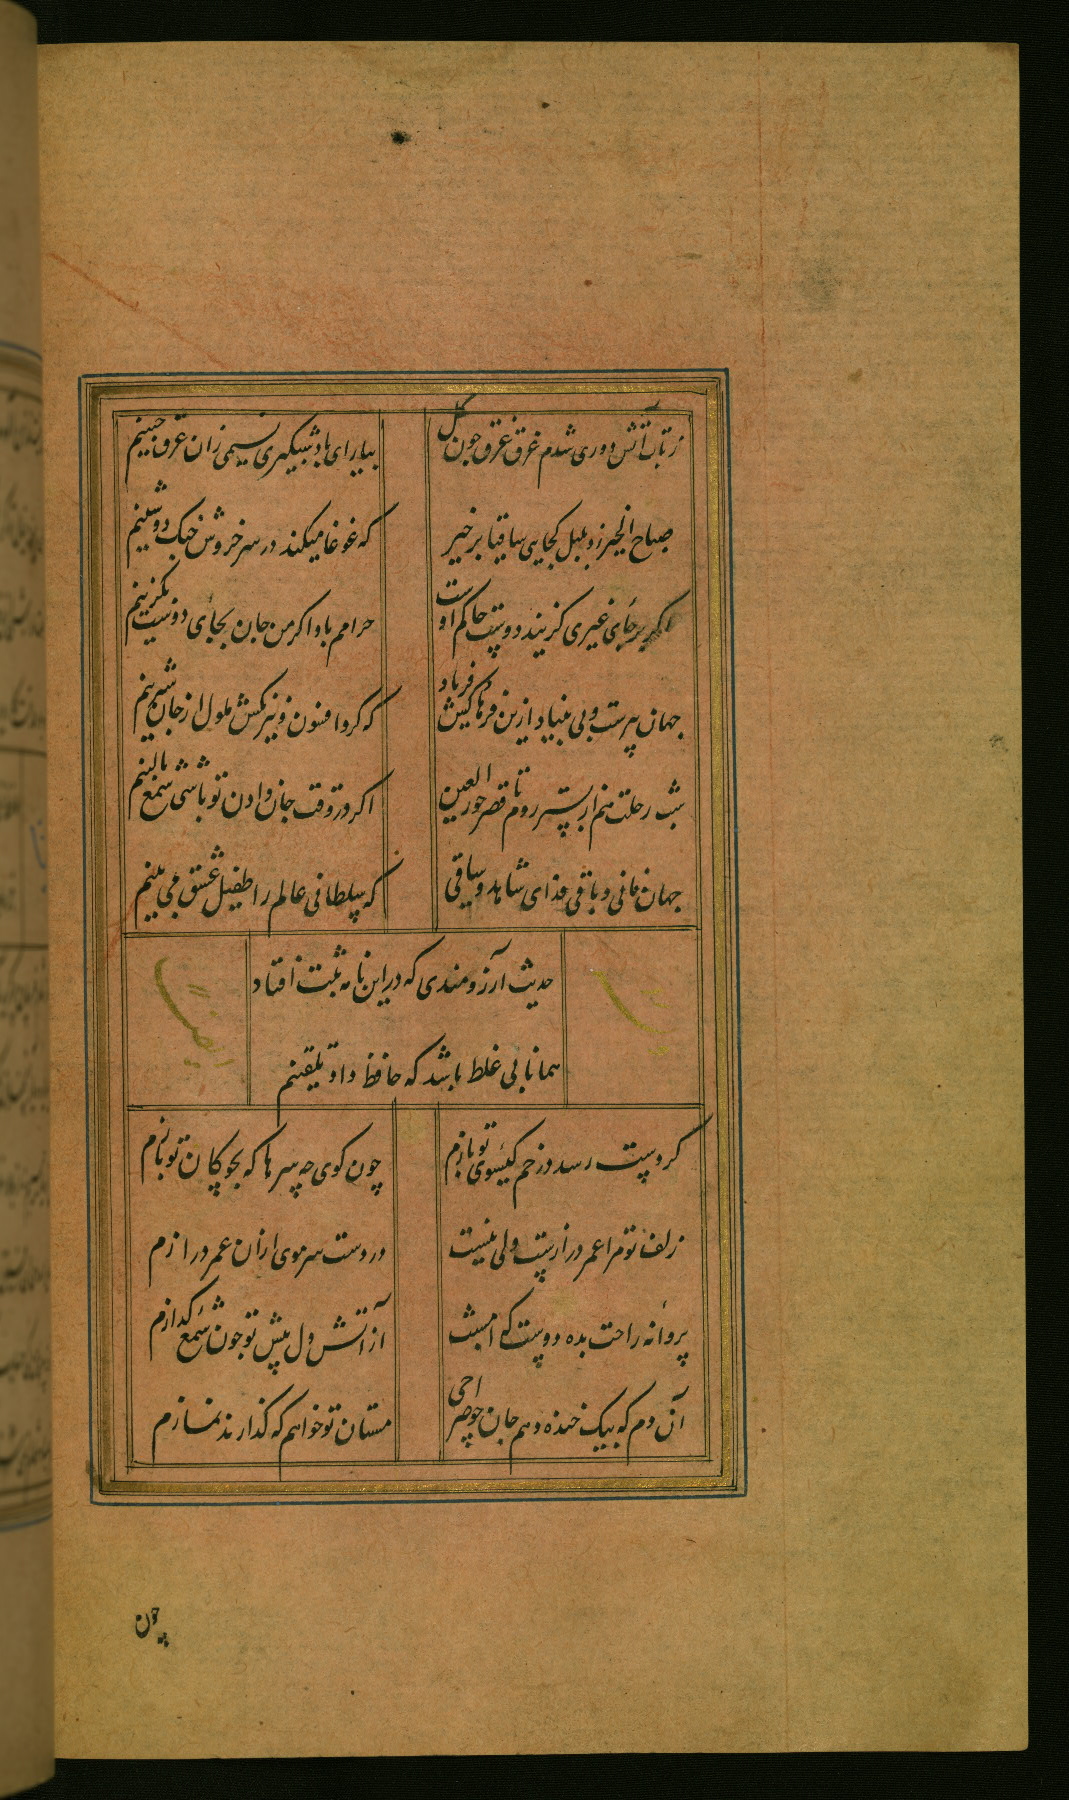 زتاب آتش دوری شدم غرق عرق چون گل
بیار ای باد شبکیری نسیمی زان عرق چینم
صباح الخیر زد بلبل کجایی ساقیا برخیز
که غوغا میکند در سر خروش چنک دوشینم
اکر بر جای غیری کزیند دوست حاکم اوست
حرامم باد اکر من جان بجای دوست بکزینم
جهان پیرست و بی بنیاد ازین فرهادکش فریاد
که کرد افسون و نیرنکش ملول از جان شیرینم
شب رحلت هم از بستر روم تا قصر حور العین
اکر در وقت جان دادن تو باشی شمع بالینم
جهان فانی و باقی فدای شاهد و ساقی
که سلطانی عالم را طفیل عشق می بینم
حدیث آرزومندی که در این نامه ثبت افتاد
همانا بی غلط باشد که حافظ داد تلقینم
کر دست رسد در خم کیسوی تو بازم
چون کوی چه سرها که بچوکان تو بازم
زلف تو مرا عمر درازست ولی نیست
در دست سر موی ازان عمر درازم
پروانه راحت بده دوست که امشب
از آتش دل پیش تو چون شمع کدازم
آن دم که بیک خنده دهم جان چو صراحی
مستان تو خواهم که کذارند نمازم
چون